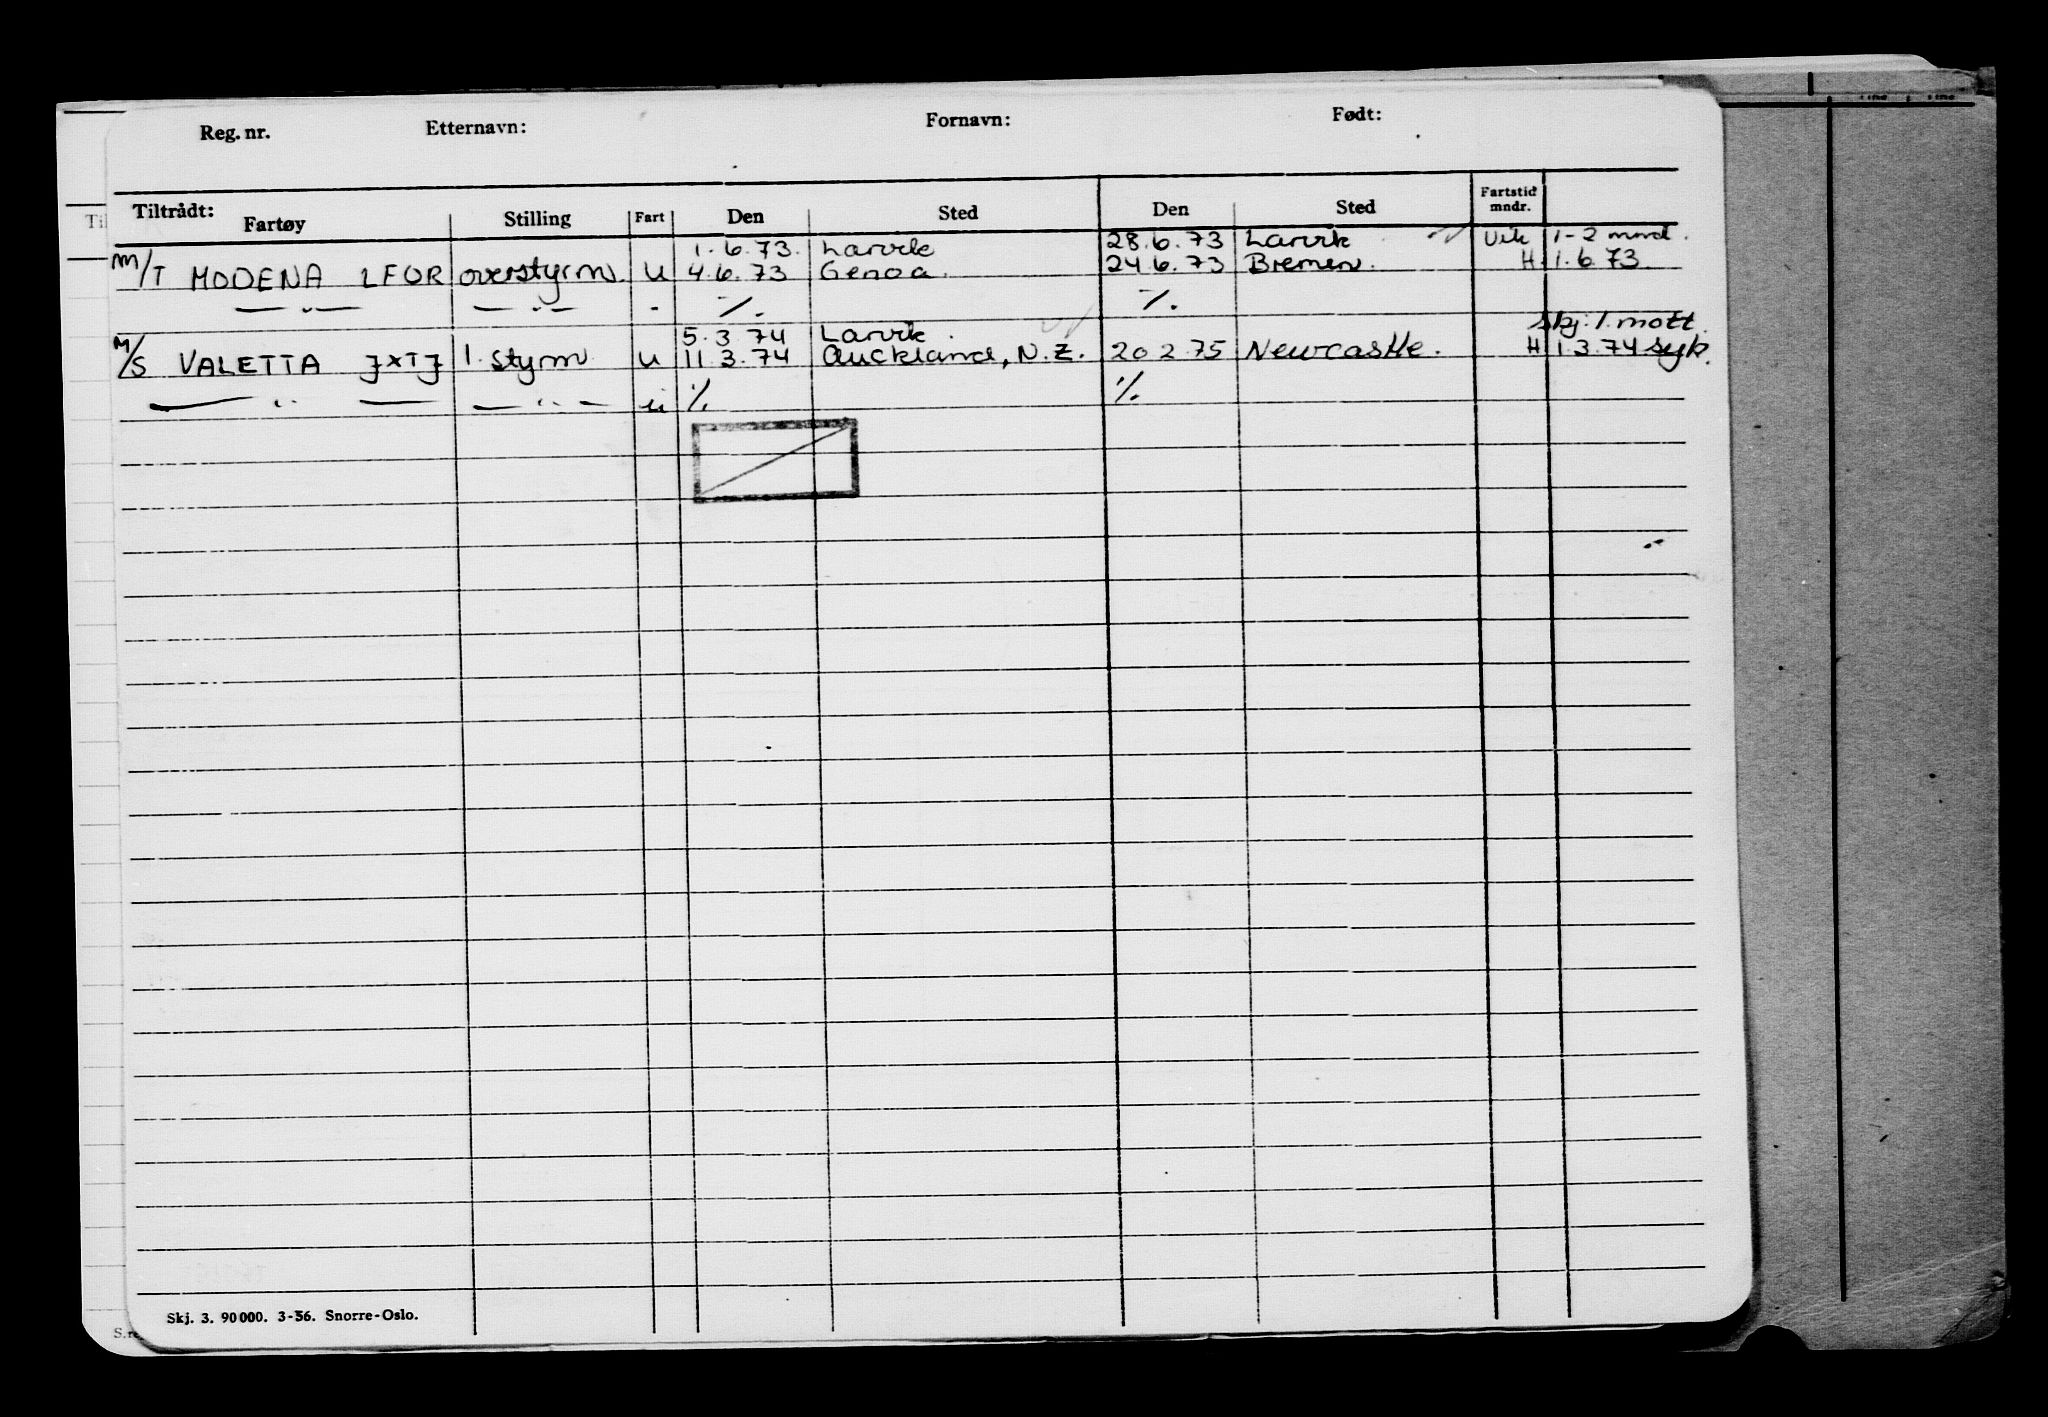 Reg. nr. Etternavn: Fornavn: Født:
Tiltrådt: Fartøy Stilling Fart Den Sted Den Sted Fartstid mndr.
1.6.73. Larvik 28.6.73 Larvik Vik 1-2 mnd.
M/T MODENA LFOR overstyrm. u 4.6.73 Genoa. 24.6.73 Bremen. H 1.6.73.
— " — — " — - ٪. ٪.
5.3.74 Larvik. Skj. 1. mott.
M/S VALETTA JXTJ 1. styrm. u 11.3.74 Auckland, N.Z. 20.2.75 Newcastle. H 1.3.74 syk.
— " — — " — u ٪. ٪.
Skj. 3. 90 000. 3-56. Snorre-Oslo.